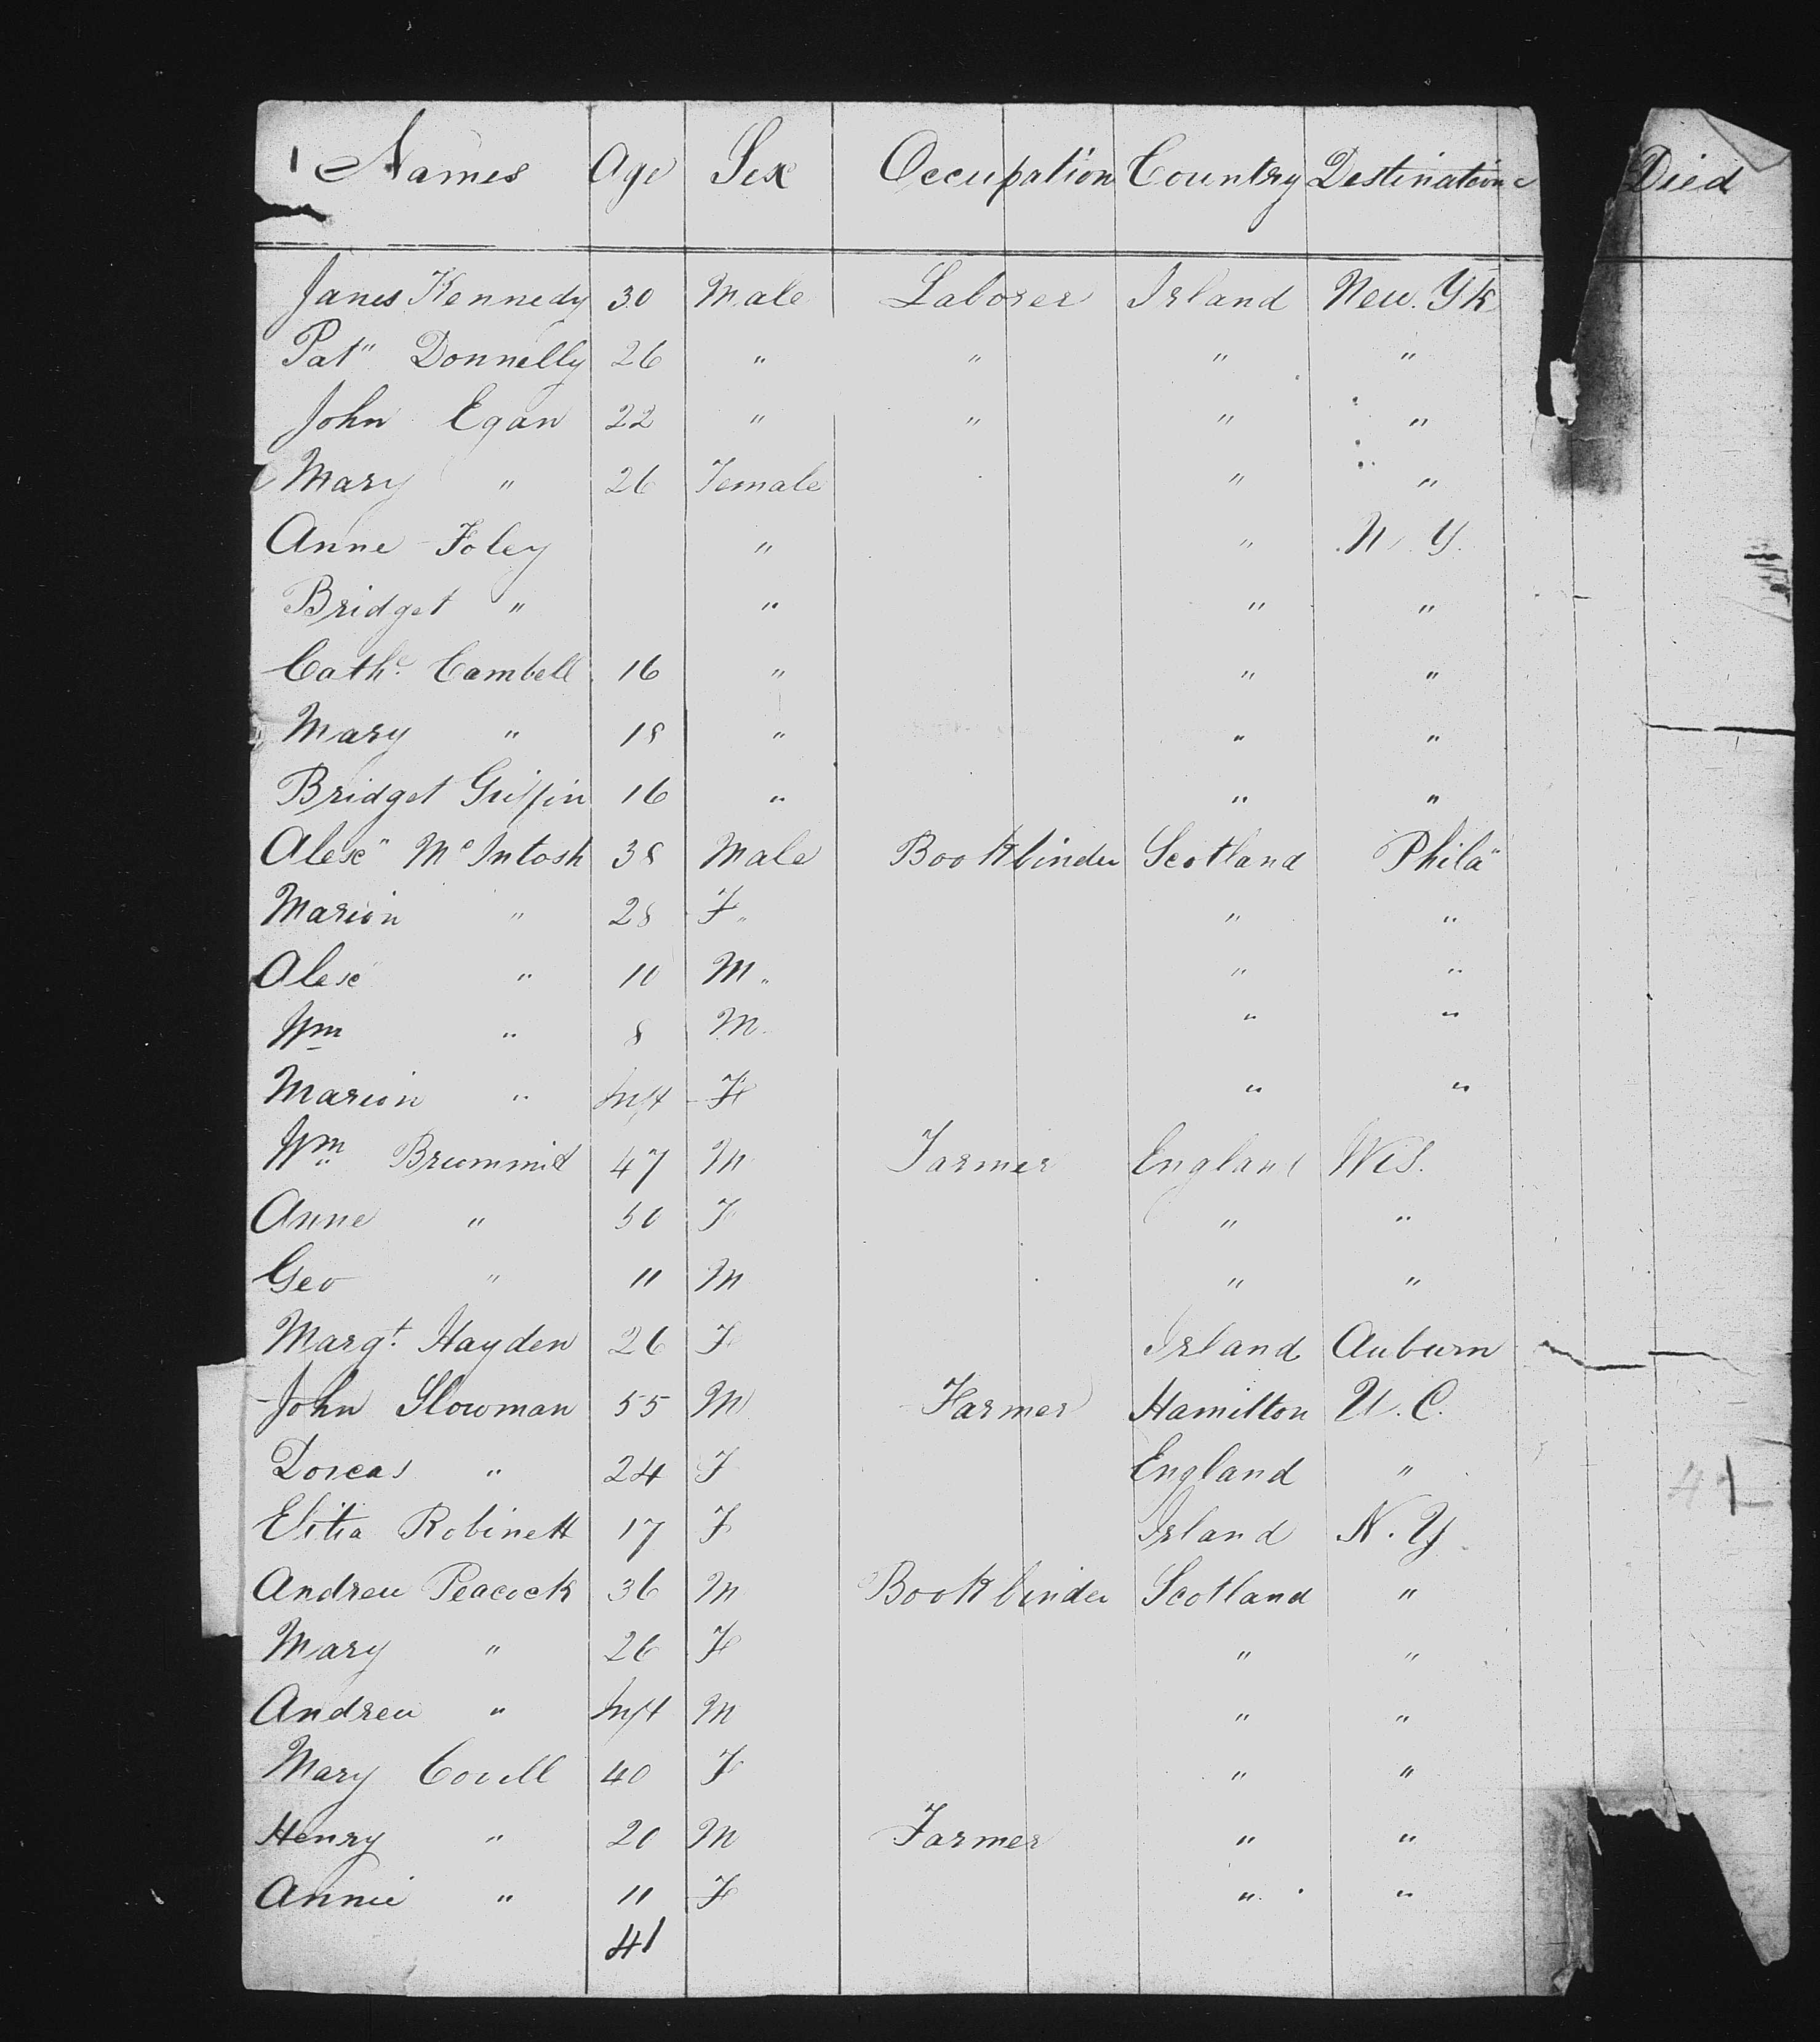 1 Names Age Sex Occupation Country Destination Died
James Kennedy 30 Male Laborer Irland New. Yk
Pat" Donnelly 26 " " " "
John Egan 22 " " " "
Mary " 26 Female " "
Anne Foley " " N. Y.
Bridget " " " "
Cathe. Cambell 16 " " "
Mary " 18 " " "
Bridget Griffin 16 " " "
Alex" McIntosh 38 Male Bookbinder Scotland Phila"
Marion " 28 F " "
Alex" " 10 M " "
Wm " 8 M " "
Marion " Inft F " "
Wm 47 M Farmer England Wis.
Anne " 50 F " "
Geo " 11 M " "
Margt. Hayden 26 F Irland Auburn
John Slowman 55 M Farmer Hamilton U. C.
Dorcas " 24 F England "
Elitia Robinett 17 F Irland N. Y
Andrew Peacock 36 M Bookbinder Scotland "
Mary " 26 F " "
Andrew " Inft M " "
Mary Covell 40 F " "
Henry " 20 M Farmer " "
Annie " 11 F " "
41